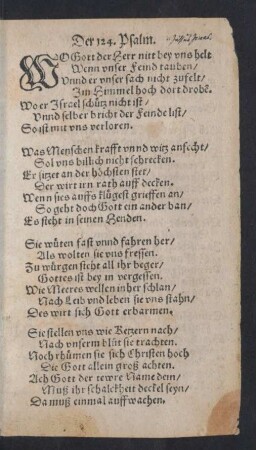 Der 124. Psalm.
WO Gott der Herr nitt bey vns helt
Wenn vnser Feind tauben/
Vnnd er vnser sach nicht zufelt/
Im Himmel hoch dort drobē.
Wo er Israel schütz nicht ist/
Vnnd selber bricht der Feinde list/
So ist mit vns verloren.
Was Menschen krafft vnnd witz anfecht/
Sol vns billich nicht schrecken.
Er sitzet an der höchsten stet/
Der wirt irn rath auff decken.
Wenn sies auffs klügest grieffen an/
So geht doch Gott ein ander ban/
Es steht in seinen Henden.
Sie wüten fast vnnd fahren her/
Als wolten sie vns fressen.
Zu würgen steht all ihr beger/
Gottes ist bey in vergessen.
Wie Meeres wellen inher schlan/
Nach Leib vnd leben sie vns stahn/
Des wirt sich Gott erbarmen.
Sie stellen vns wie Ketzern nach/
Nach vnserm blüt sie trachten.
Noch rhümen sie sich Christen hoch
Die Gott allein groß achten.
Ach Gott der tewre Name dein/
Muß ihr schalckheit deckel seyn/
Da muß einmal auffwachen.